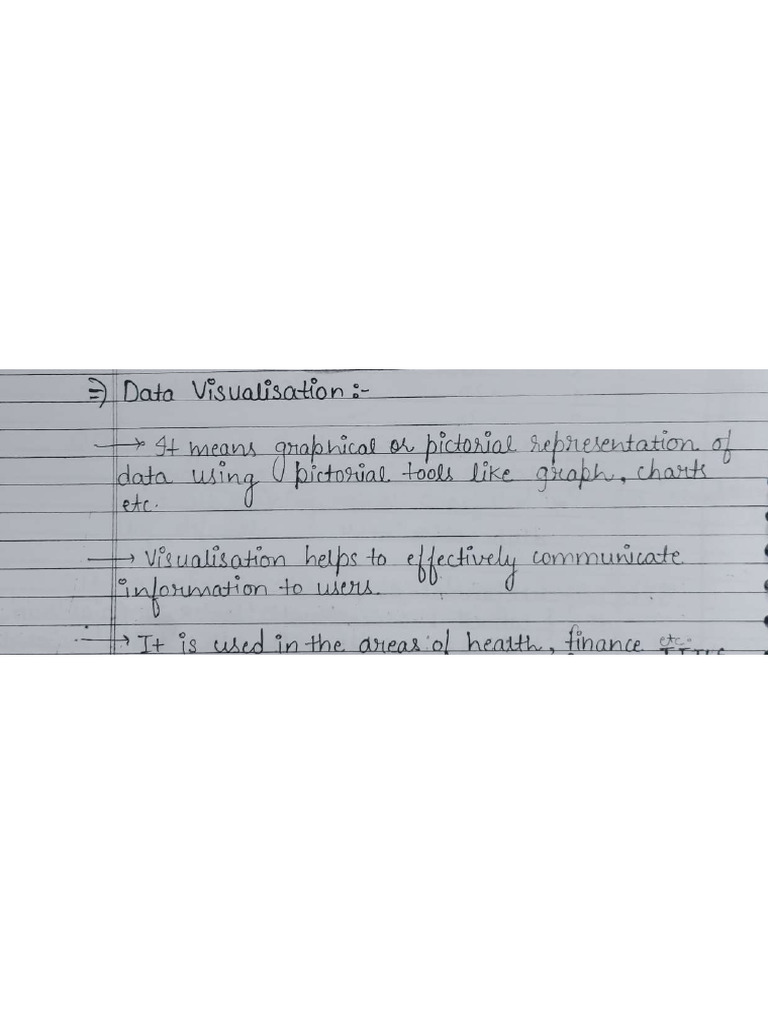 ⇒) Data Visualisation :-
→ It means graphical or pictorial representation of
data using pictorial tools like graph, charts
etc.
→ Visualisation helps to effectively communicate
information to users.
→ It is used in the areas of health, finance etc.